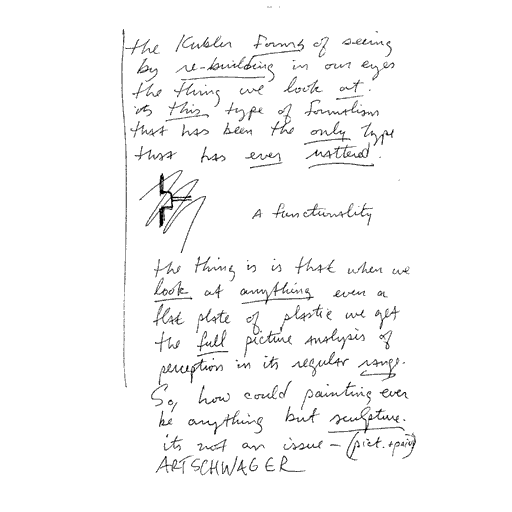 the Kubler Forms of seeing
by re-building in our eyes
the thing we look at.
its this type of formalism
that has been the only type
that has ever mattered.
A functionality
the thing is is that when we
look at anything even a
flat plate of plastic we get
the full picture analysis of
perception in its regular range.
So, how could painting ever
be anything but sculpture.
its not an issue — (pict. + paint)
ARTSCHWAGER